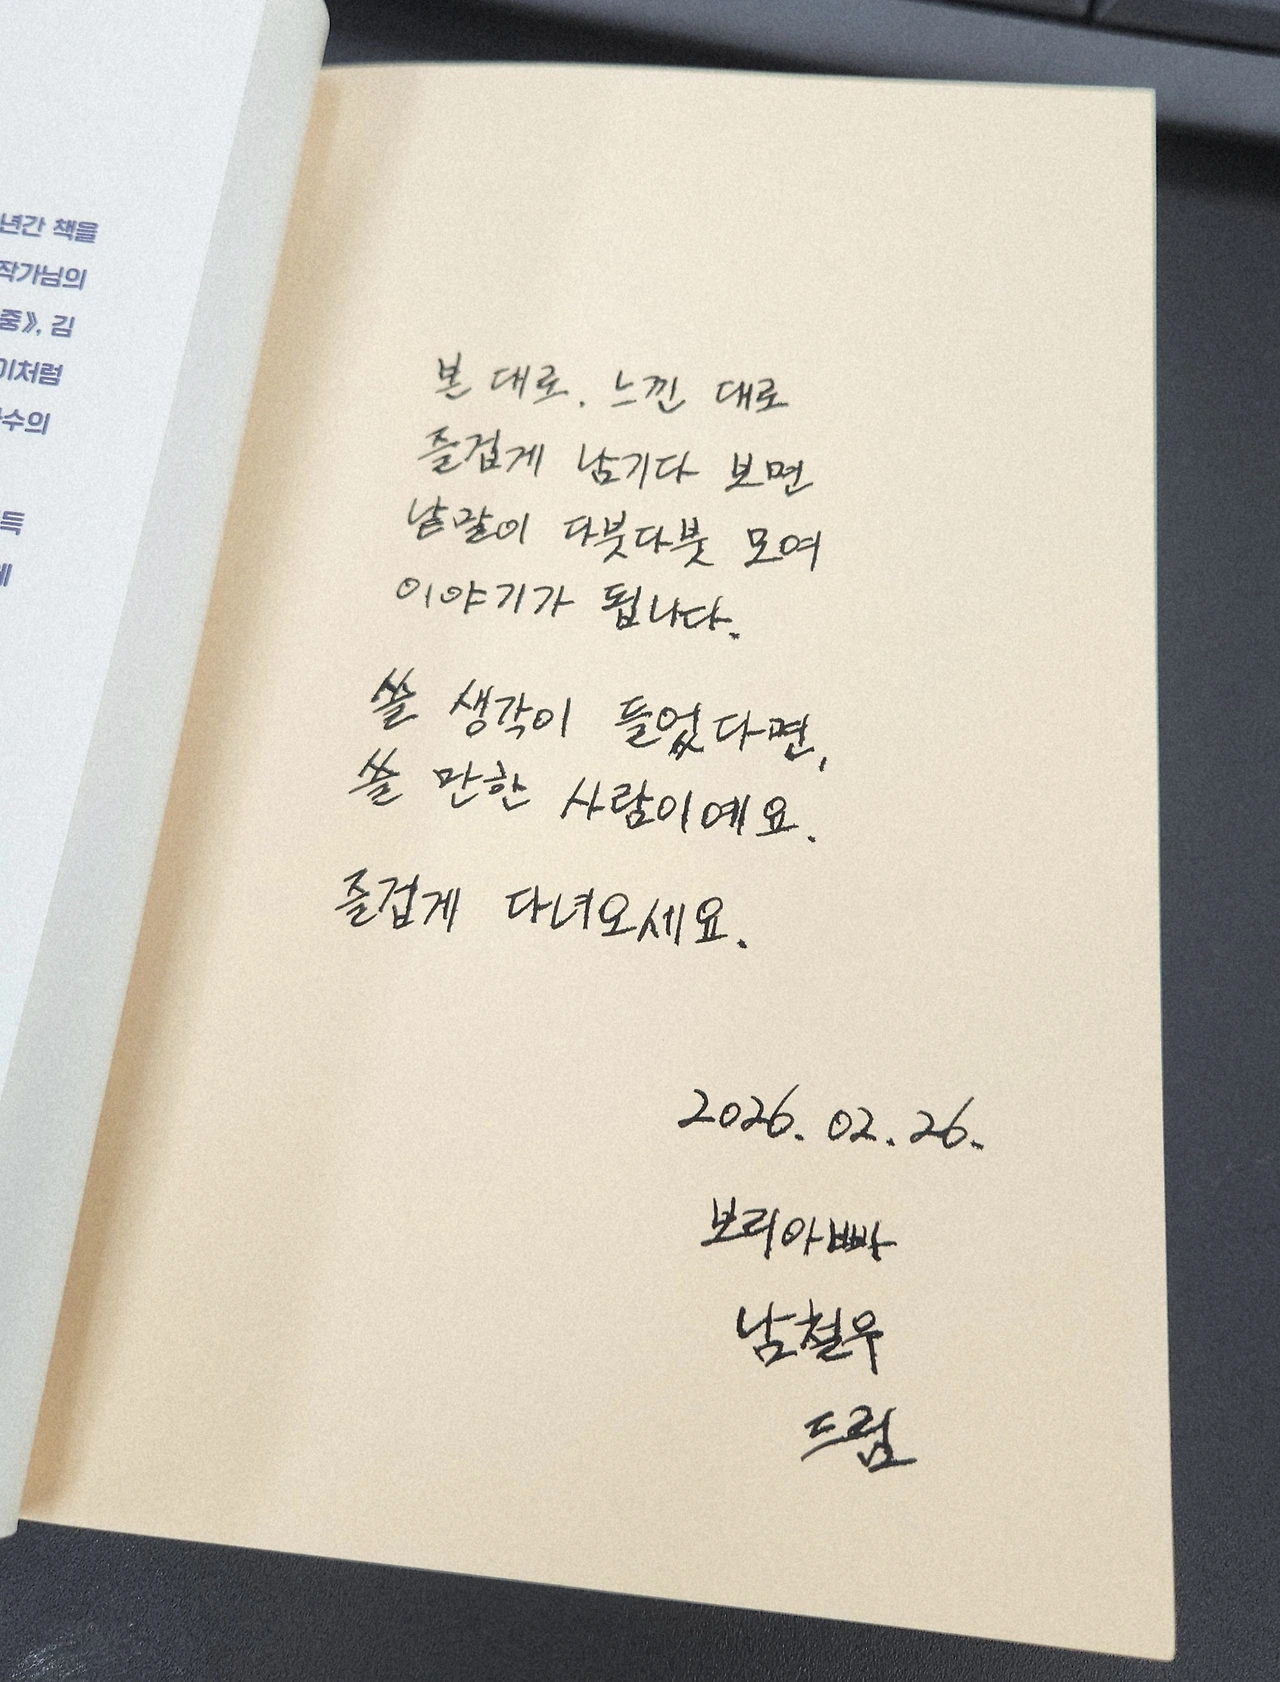 년간 책을
작가님의
중》, 김
이처럼
수의
득
에
본 대로, 느낀 대로
즐겁게 남기다 보면
낱말이 다붓다붓 모여
이야기가 됩니다.
쓸 생각이 들었다면,
쓸 만한 사람이예요.
즐겁게 다녀오세요.
2026. 02. 26.
보리아빠
남철우
드림